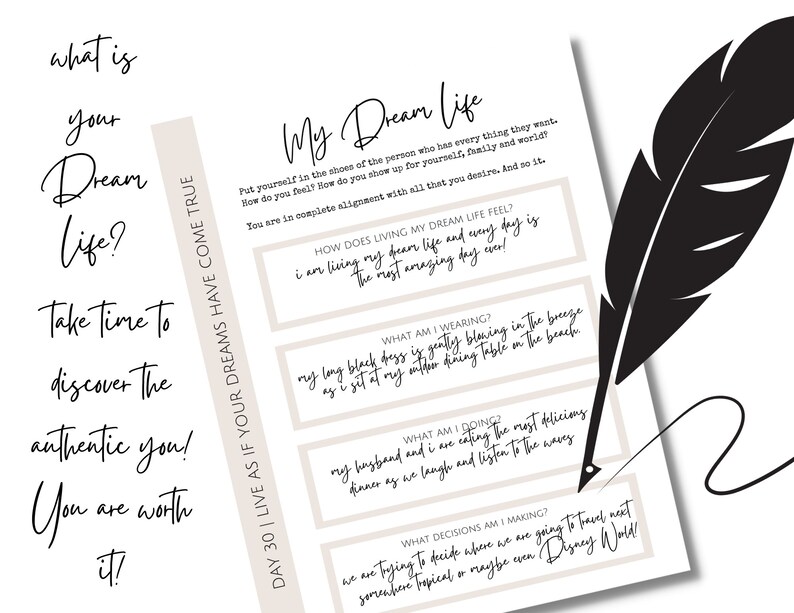 what is
your
Dream
Life?
take time to
discover the
authentic you!
You are worth
it!
DAY 30 | LIVE AS IF YOUR DREAMS HAVE COME TRUE
My Dream Life
Put yourself in the shoes of the person who has every thing they want.
How do you feel? How do you show up for yourself, family and world?
You are in complete alignment with all that you desire. And so it.
HOW DOES LIVING MY DREAM LIFE FEEL?
i am living my dream life and every day is
the most amazing day ever!
WHAT AM I WEARING?
my long black dress is gently blowing in the breeze
as i sit at my outdoor dining table on the beach.
WHAT AM I DOING?
my husband and i are eating the most delicious
dinner as we laugh and listen to the waves
WHAT DECISIONS AM I MAKING?
we are trying to decide where we are going to travel next
somewhere tropical or maybe even Disney World!